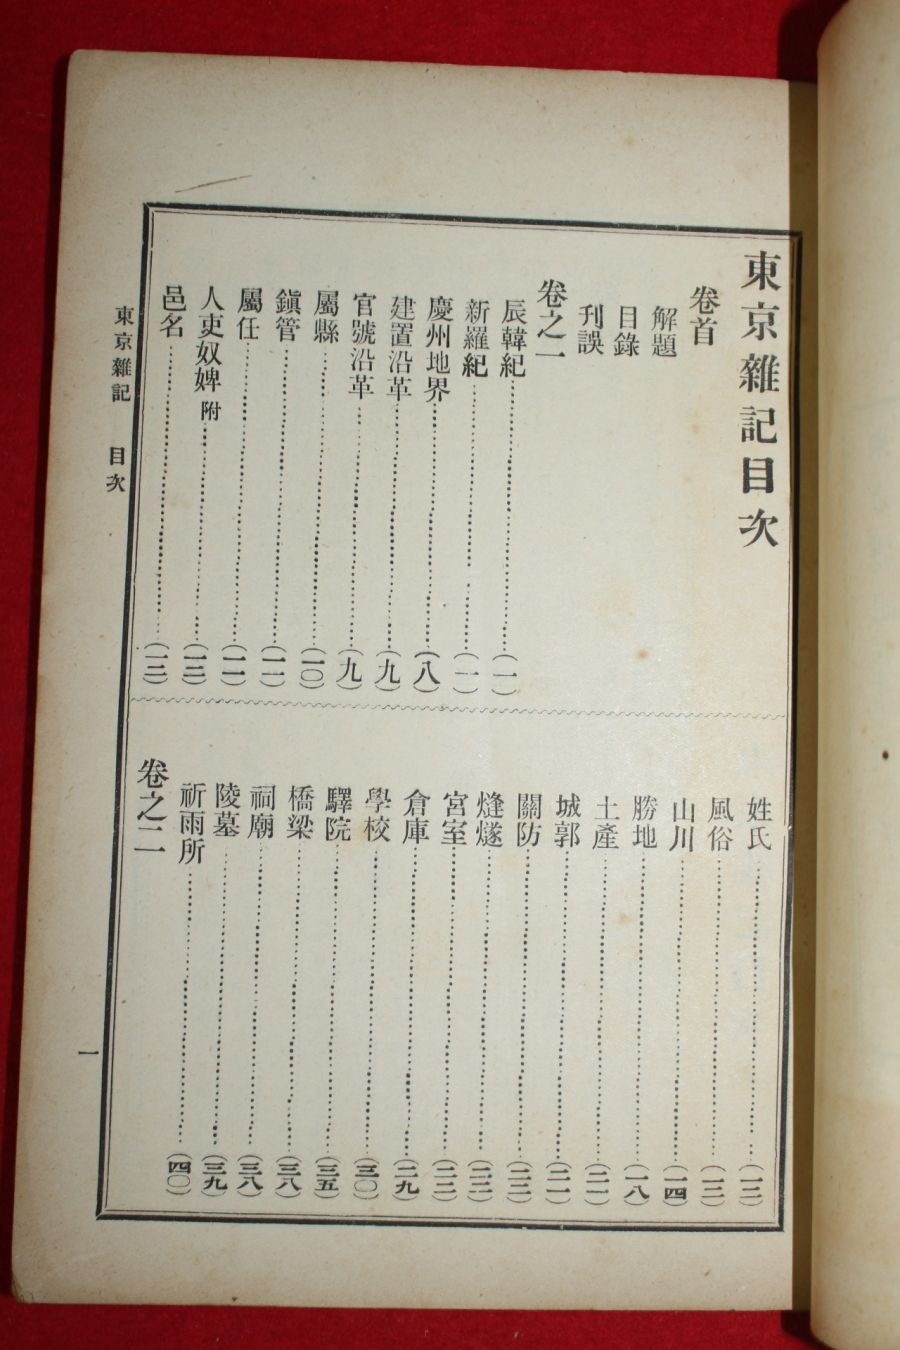 東京雜記目次
卷首
解題
目錄
刋誤
卷之一
辰韓紀………(一)
新羅紀………(一)
慶州地界………(八)
建置沿革………(九)
官號沿革………(九)
屬縣………(一〇)
鎭管………(一一)
屬任………(一一)
人吏奴婢附………(一三)
邑名………(一三)
姓氏………(一三)
風俗………(一三)
山川………(一四)
勝地………(一八)
土產………(二一)
城郭………(二一)
關防………(二二)
熢燧………(二二)
宮室………(二二)
倉庫………(二九)
學校………(三〇)
驛院………(三五)
橋梁………(三八)
祠廟………(三八)
陵墓………(三九)
祈雨所………(四〇)
卷之二
東京雜記 目次
一